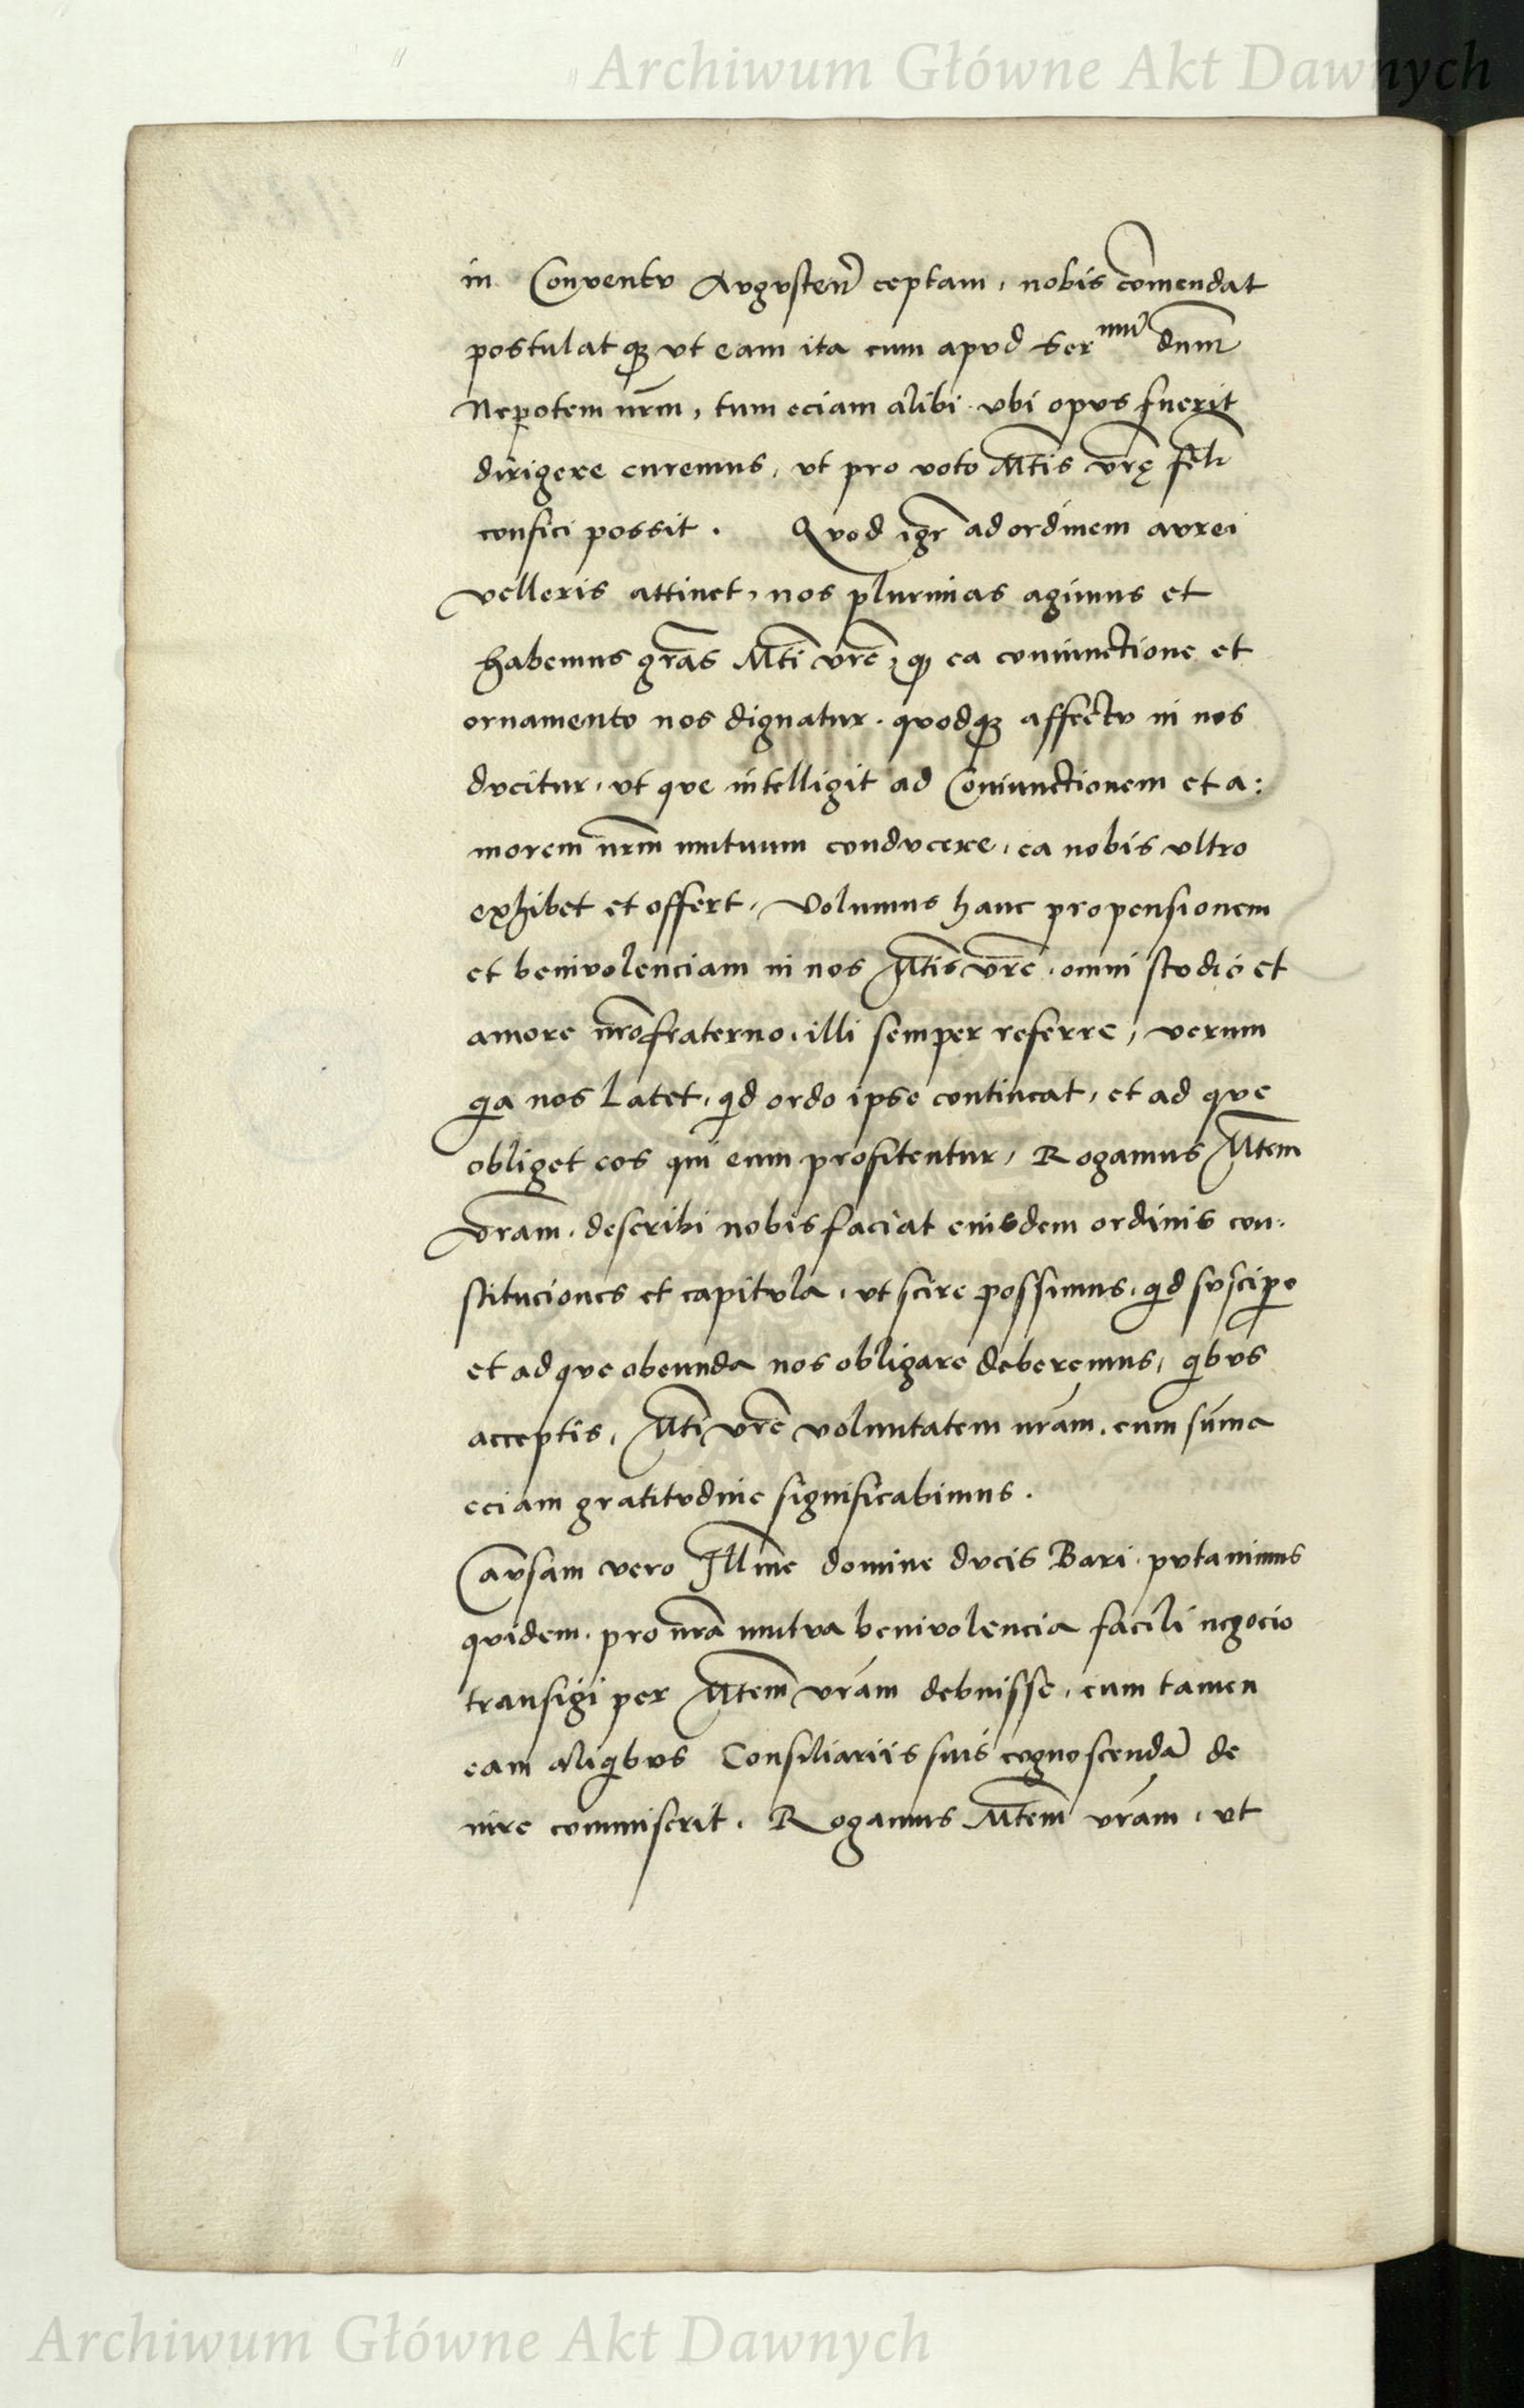 Archiwum Główne Akt Dawnych
in Conventv Avgvsten̄ ceptam, nobis com̄endat
postulat qꝫ vt eam ita cum apvd Ser^mū dnm̄
Nepotem nrm̄, tum eciam alibi vbi opvs fuerit
dirigere curemus, vt pro voto Mtīs vrę̄
confici possit. Qvod igr̄ ad ordinem avrei
velleris attinet, nos plurimas agimus et
habemus grās Mtī vrē, qꝫ ea coniunctione et
ornamento nos dignatur. qvodqꝫ affectv in nos
dvcitur, vt qve intelligit ad Coniunctionem et a:
morem nrm̄ mutuum condvcere, ea nobis vltro
exhibet et offert, Volumus hanc propensionem
et benivolenciam in nos Mtīs vrē, omni stvdio et
amore nrō fraterno, illi semper referre, verum
qa nos Latet, qd ordo ipse contineat, et ad qve
obliget eos qui eum profitentur, Rogamus Mtem̄
Vrām, describi nobis faciat eiusdem ordinis con:
stituciones et capitvla, vt scire possimus, qd svscipe
et ad qve obeunda nos obligare deberemus, qbvs
acceptis, Mtī vrē voluntatem nrām, cum sum̄a
eciam gratitvdine significabimus.
Cavsam vero Illmē domine dvcis Bari pvtavimus
qvidem, pro nrā mutva benivolencia facili negocio
transigi per Mtem̄ vrām debuisse, cum tamen
eam aliqbvs Consiliariis suis cognoscendā de
iure commiserit. Rogamus Mtem̄ vrām, vt
Archiwum Główne Akt Dawnych